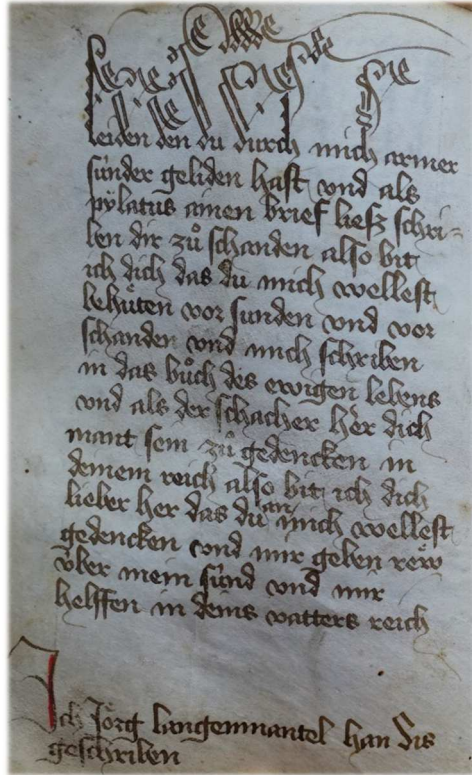 leiden den du durch mich armer
sünder geliden hast vnd als
pylatus ainen brief liesz schri-
ben dir zů schanden also bit
ich dich das du mich wellest
behüten vor sunden vnd vor
schanden vnd mich schriben
in das bůch des ewigen lebens
vnd als der schacher her dich
mant sein zů gedencken in
deinem reich also bit ich dich
lieber her das du an mich wellest
gedencken vnd mir geben rew
über mein sünd vnd mir
helffen in deins vatters reich
Ich Jörg langenmantel han dis
geschriben